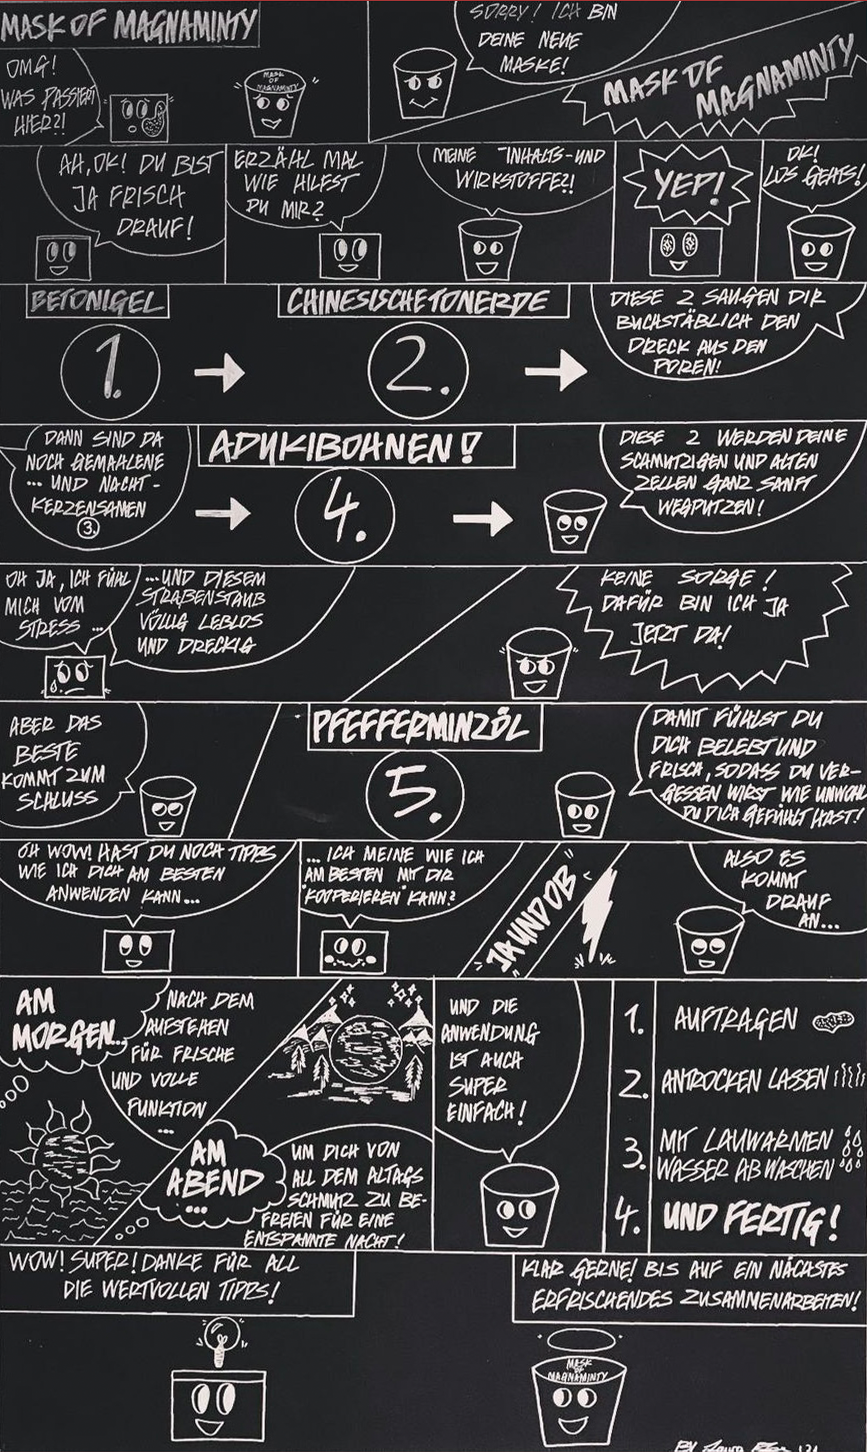 MASK OF MAGNAMINTY
OMG!
WAS PASSIERT
HIER?!
MASK
OF
MAGNAMINTY
SORRY! ICH BIN
DEINE NEUE
MASKE!
MASK OF
MAGNAMINTY
AH, OK! DU BIST
JA FRISCH
DRAUF!
ERZÄHL MAL
WIE HILFST
DU MIR?
MEINE "INHALTS-UND
WIRKSTOFFE?!
YEP!
OK!
LOS GEHTS!
BETONIGEL
1.
CHINESISCHE TONERDE
2.
DIESE 2 SAUGEN DIR
BUCHSTÄBLICH DEN
DRECK AUS DEN
POREN!
DANN SIND DA
NOCH GEMAHLENE
... UND NACHT-
KERZENSAMEN
3.
ADUKIBOHNEN!
4.
DIESE 2 WERDEN DEINE
SCHMUTZIGEN UND ALTEN
ZELLEN GANZ SANFT
WEGPUTZEN!
OH JA, ICH FÜHL
MICH VOM
STRESS ...
...UND DIESEM
STRAßENSTAUB
VÖLLIG LEBLOS
UND DRECKIG
KEINE SORGE!
DAFÜR BIN ICH JA
JETZT DA!
ABER DAS
BESTE
KOMMT ZUM
SCHLUSS
PFEFFERMINZÖL
5.
DAMIT FÜHLST DU
DICH BELEBT UND
FRISCH, SODASS DU VER-
GESSEN WIRST WIE UNWOHL
DU DICH GEFÜHLT HAST!
OH WOW! HAST DU NOCH TIPPS
WIE ICH DICH AM BESTEN
ANWENDEN KANN...
... ICH MEINE WIE ICH
AM BESTEN MIT DIR
"KOOPERIEREN" KANN?
"JA UND OB"
ALSO ES
KOMMT
DRAUF
AN...
AM
MORGEN...
NACH DEM
AUFSTEHEN
FÜR FRISCHE
UND VOLLE
FUNKTION
...
AM
ABEND
...
UM DICH VON
ALL DEM ALTAGS
SCHMUTZ ZU BE-
FREIEN FÜR EINE
ENTSPANNTE NACHT!
UND DIE
ANWENDUNG
IST AUCH
SUPER
EINFACH!
1. AUFTRAGEN
2. ANTROCKEN LASSEN
3. MIT LAUWARMEN
WASSER ABWASCHEN
4. UND FERTIG!
WOW! SUPER! DANKE FÜR ALL
DIE WERTVOLLEN TIPPS!
KLAR GERNE! BIS AUF EIN NÄCHSTES
ERFRISCHENDES ZUSAMMENARBEITEN!
MASK
OF
MAGNAMINTY
BY